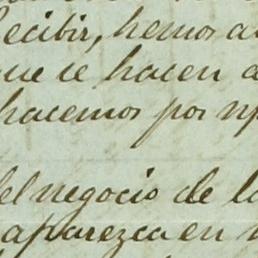 recibir, hemos a
que se hacen a
hacemos por n
del negocio de la
aparezca en n